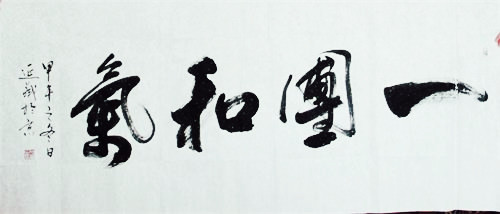 一團和氣
甲午之冬日
延武於京